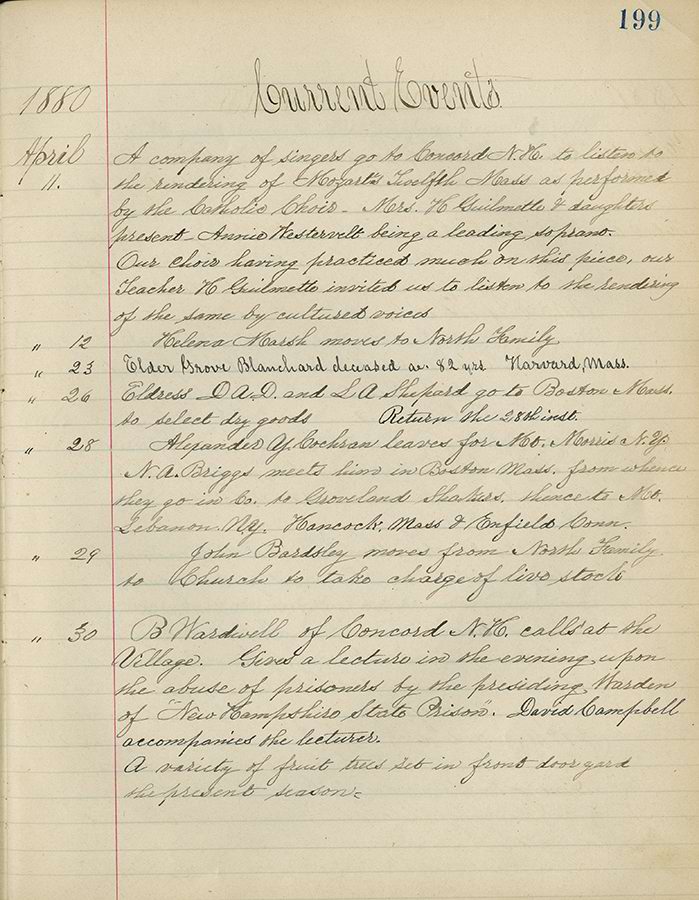 199
Current Events
1880
April
11.
A company of singers go to Concord N.H. to listen to
the rendering of Mozart's Twelfth Mass as performed
by the Catholic Choir - Mrs. H Guilmette & daughters
present - Annie Westervelt being a leading soprano.
Our choir having practiced much on this piece, our
Teacher H Guilmette invited us to listen to the rendering
of the same by cultured voices
" 12 Helena Marsh moves to North Family
" 23 Elder Grove Blanchard deceased ae. 82 yrs Harvard, Mass.
" 26 Eldress D A.D. and L A Shepard go to Boston Mass.
to select dry goods Return the 28th inst.
" 28 Alexander Y. Cochran leaves for Mt. Morris N.Y.
N.A. Briggs meets him in Boston Mass. from whence
they go in Co. to Groveland Shakers. thence to Mt.
Lebanon N.Y. Hancock, Mass & Enfield Conn.
" 29 John Bardsley moves from North Family
to Church to take charge of live stock
" 30 B Wardwell of Concord N.H. calls at the
Village. Gives a lecture in the evening upon
the abuse of prisoners by the presiding Warden
of "New Hampshire State Prison". David Campbell
accompanies the lecturer.
A variety of fruit trees set in front door yard
the present season =